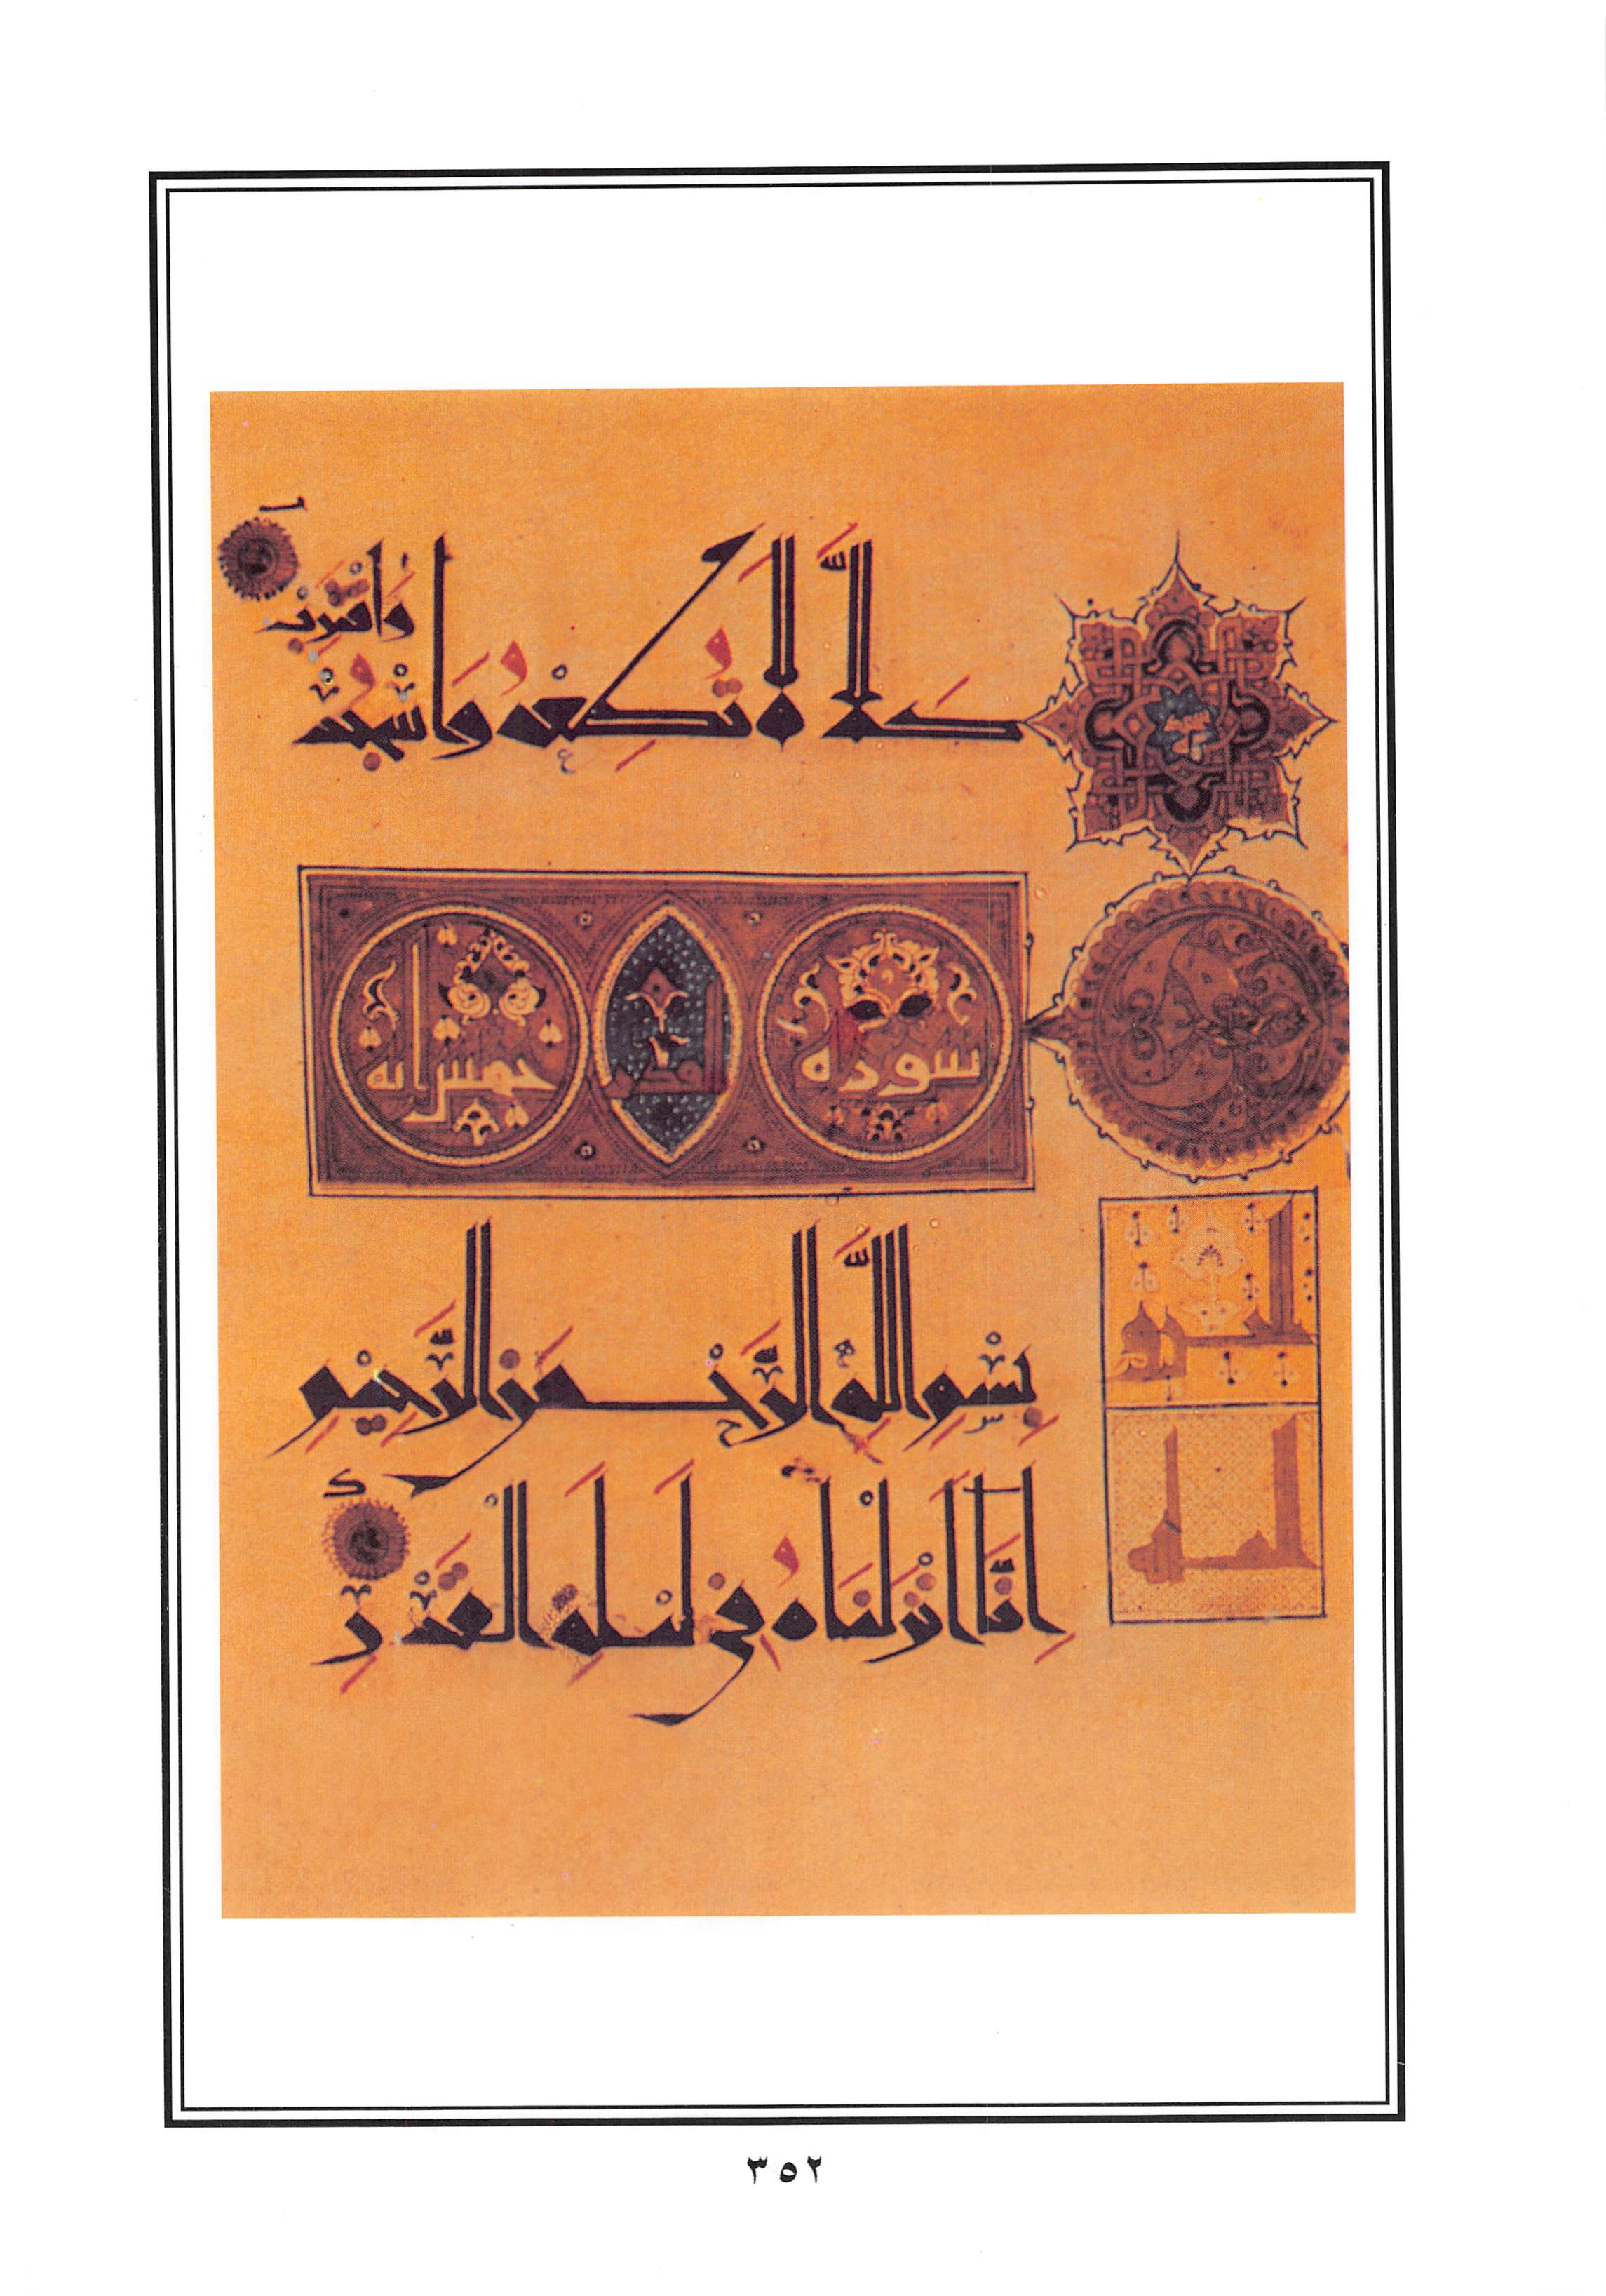 كَلَّا لَا تُطِعْهُ وَاسْجُدْ
وَاقْتَرِبْ
سورة القدر خمس ايه
بِسْمِ اللَّهِ الرَّحْمَنِ الرَّحِيمِ
اِنَّا اَنْزَلْنَاهُ فِي لَيْلَةِ الْقَدْرِ
٣٥٢